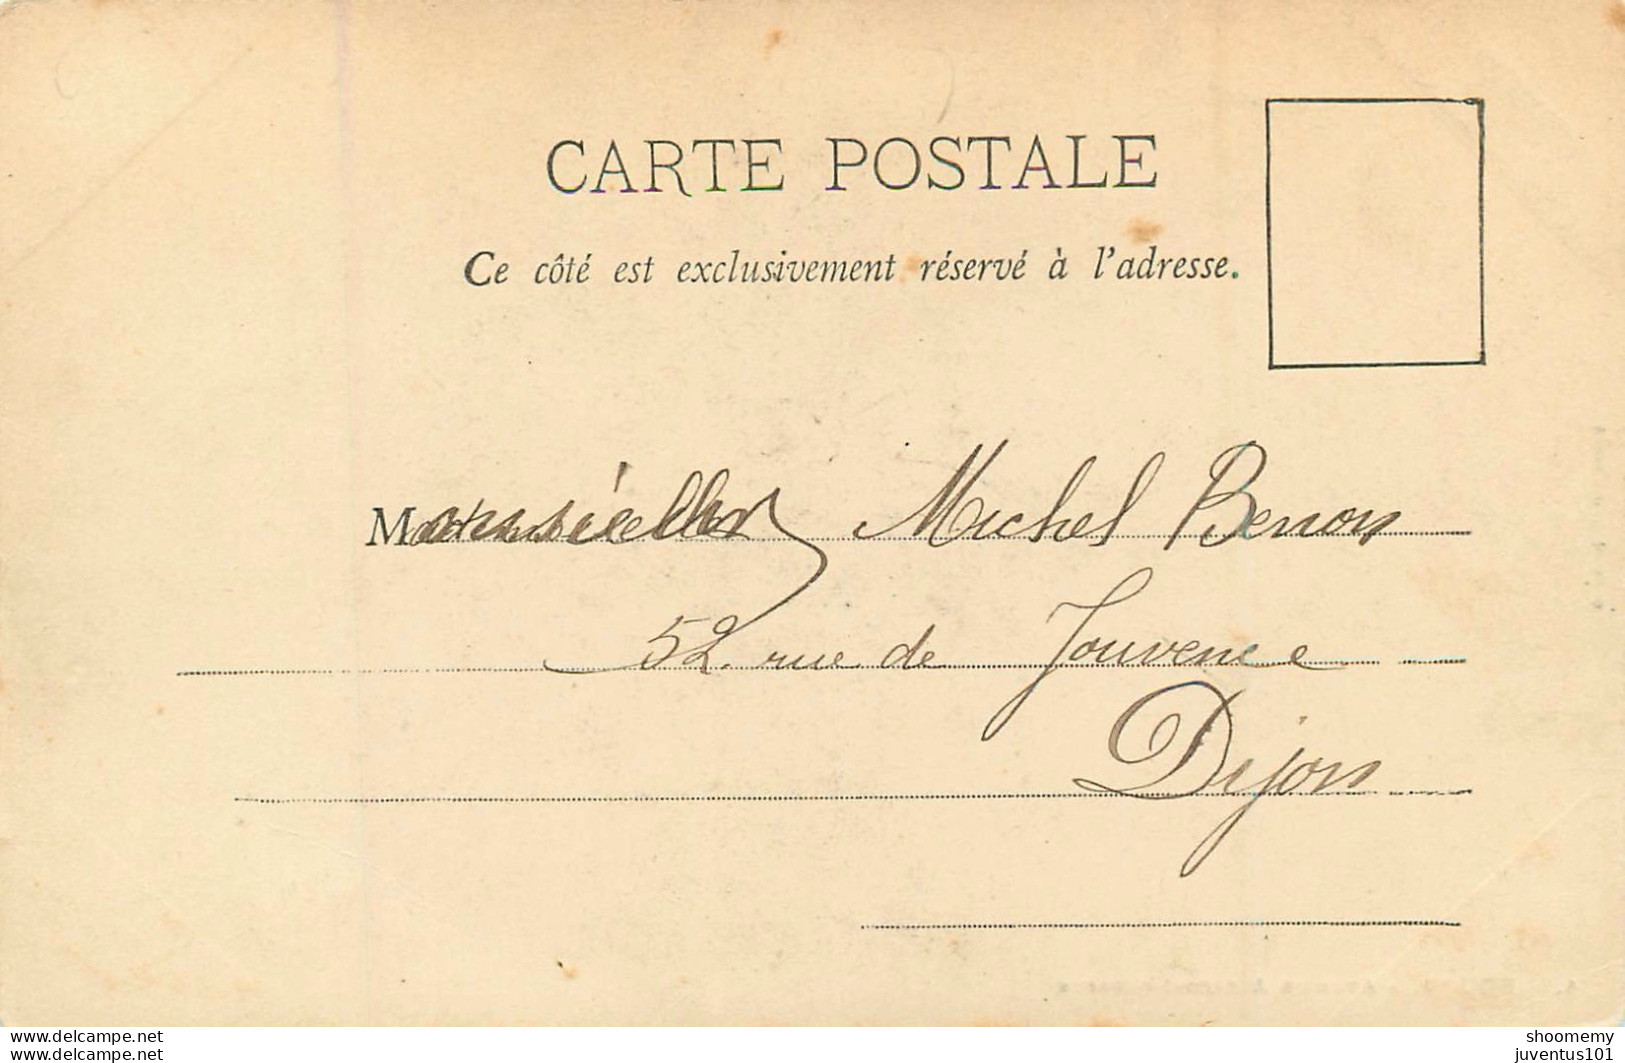 CARTE POSTALE
Ce côté est exclusivement réservé à l'adresse.
M Michel Benon
52 rue de Jouvence
Dijon
www.delcampe.net
www.delcampe.net
shoomemy
juventus101